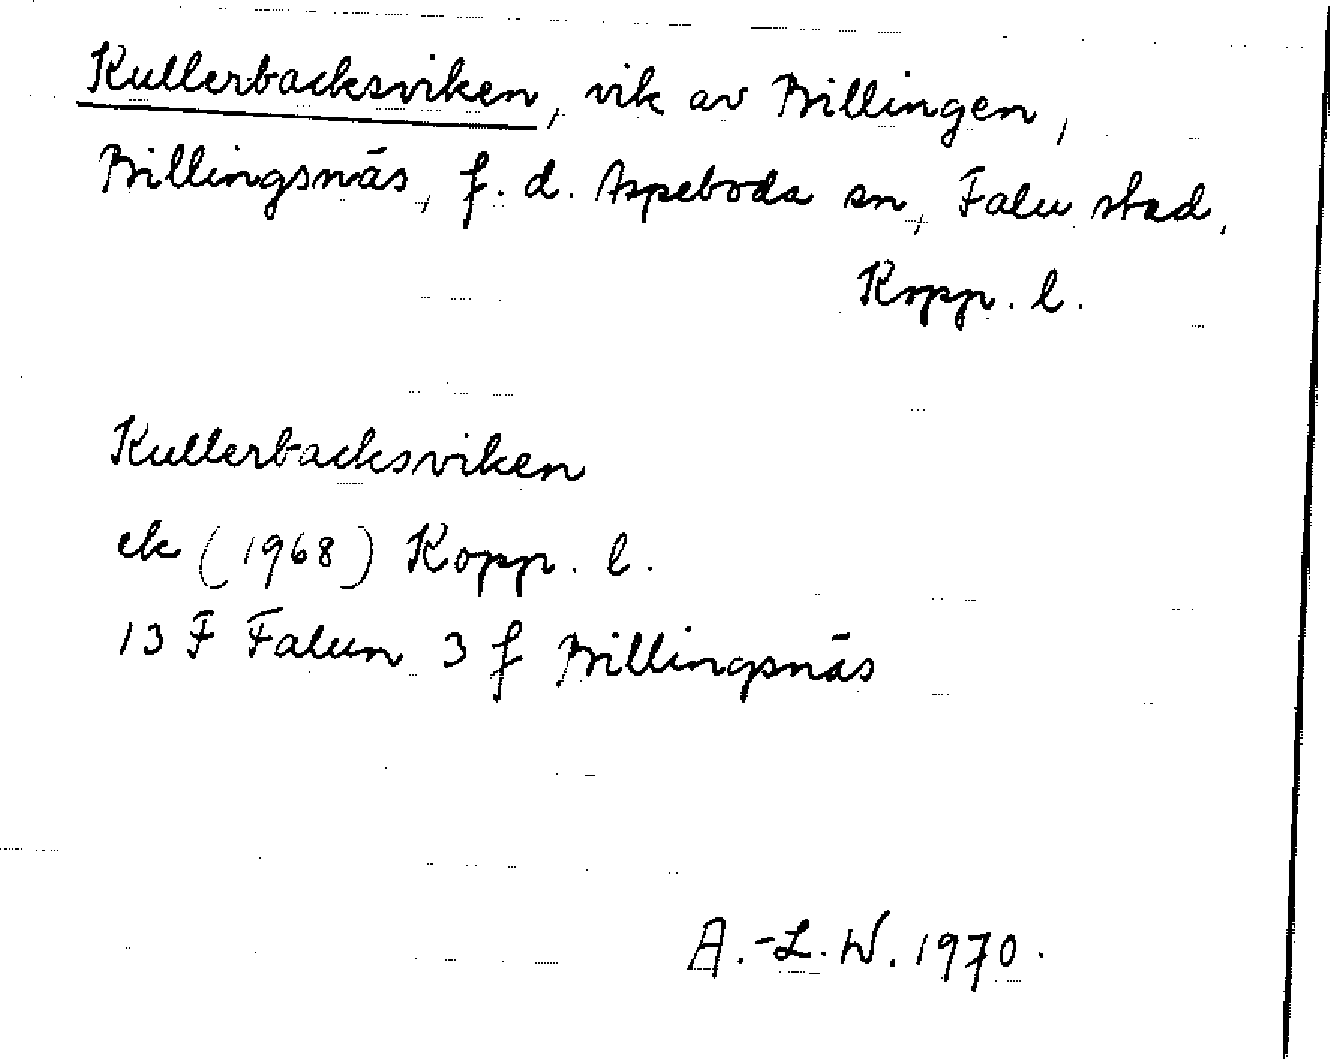 Kullerbacksviken, vik av Billingen,
Billingsnäs, f. d. Aspeboda sn, Falu stad,
Kopp. l.
Kullerbacksviken
ek (1968) Kopp. l.
13 F Falun 3 f Billingsnäs
A.-L. W. 1970.